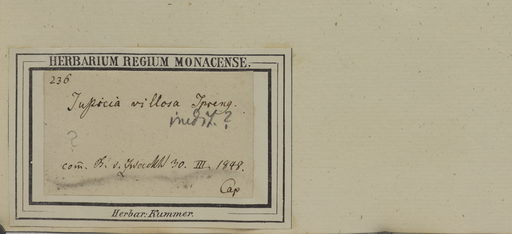 HERBARIUM REGIUM MONACENSE.
236
Justicia villosa Spreng.
inedit.?
?
com̅. B. v. 30. III. 1848.
Cap
Herbar: Kummer.